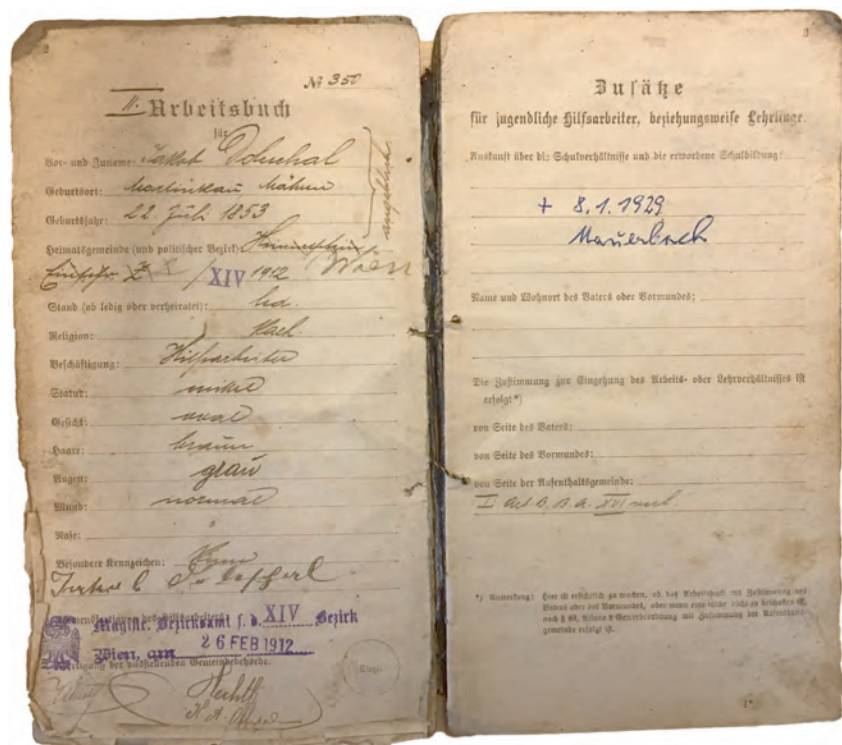 2
№ 350
II. Arbeitsbuch
für
Vor- und Zuname: Jakob Dolezhal
angeblich
Geburtsort: Mähren
Geburtsjahr: 22. Juli 1853
Heimatsgemeinde (und politischer Bezirk): Wien
XIV / 1912
Stand (ob ledig oder verheiratet): led.
Religion: kath.
Beschäftigung: Hilfsarbeiter
Statur: mittel
Gesicht: oval
Haare: braun
Augen: grau
Mund: normal
Nase: "
Besondere Kennzeichen:
Namensfertigung des Hilfsarbeiters:
Magistr. Bezirksamt f. d. XIV Bezirk
Wien, am 26 FEB 1912
Fertigung der ausstellenden Gemeindebehörde.
Siegel
3
Zusätze
für jugendliche Hilfsarbeiter, beziehungsweise Lehrlinge.
Auskunft über die Schulverhältnisse und die erworbene Schulbildung:
+ 8.1.1929
Mauerbach
Name und Wohnort des Vaters oder Vormundes:
Die Zustimmung zur Eingehung des Arbeits- oder Lehrverhältnisses ist
erfolgt*)
von Seite des Vaters:
von Seite des Vormundes:
von Seite der Aufenthaltsgemeinde:
I B. A. XVI
*) Anmerkung: Hier ist ersichtlich zu machen, ob das Arbeitsbuch mit Zustimmung des
Vaters oder des Vormundes, oder wenn eine solche nicht zu beschaffen ist,
nach § 80, Alinea 2 Gewerbeordnung mit Zustimmung der Aufenthalts-
gemeinde erfolgt ist.
1*